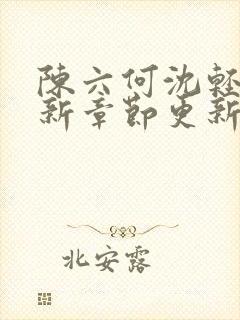 陳六何沈輕
新章節更新
北安露